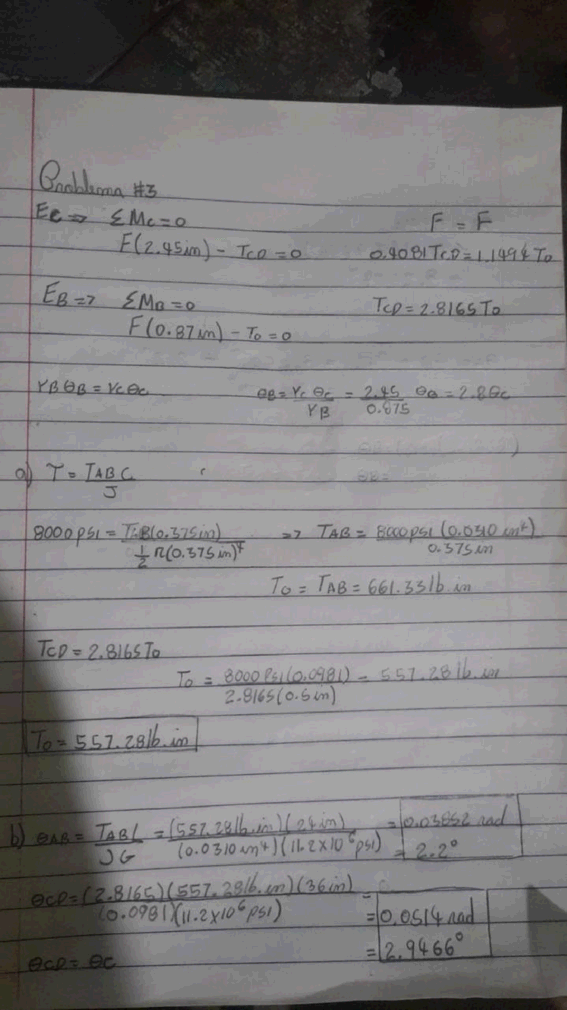 Problema #3
EC => ΣMC=0 F = F
F(2.45in) - TCD = 0 0.4081TCD = 1.1494 To
EB => ΣMB=0 TCD = 2.8165 To
F(0.87in) - To = 0
rBθB = rCθC θB = rC θC / rB = 2.45 / 0.875 θB = 2.8θC
a) τ = TAB C / J
8000 psi = TAB(0.375in) / ½ π(0.375in)⁴ => TAB = 8000 psi (0.0310 in⁴) / 0.375in
To = TAB = 661.33 lb.in
TCD = 2.8165 To
To = 8000 Psi(0.0981) / 2.8165(0.5in) = 557.28 lb.in
To = 557.28 lb.in
b) θAB = TAB L / JG = (557.28 lb.in)(24in) / (0.0310 in⁴)(11.2x10⁶ psi) = 0.03852 rad
= 2.2°
θCD = (2.8165)(557.28 lb.in)(36in) / (0.0981)(11.2x10⁶ psi) =
= 0.0514 rad
θCD = θC = 2.9466°